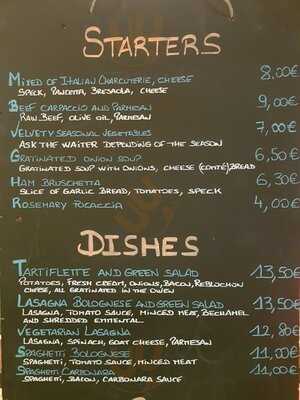 STARTERS
MIXED OF ITALIAN CHARCUTERIE, CHEESE 8,00€
SPECK, PANCETTA, BRESAOLA, CHEESE
BEEF CARPACCIO AND PARMESAN 9,00€
RAW BEEF, OLIVE OIL, PARMESAN
VELVETY SEASONAL VEGETABLES 7,00€
ASK THE WAITER DEPENDING OF THE SEASON
GRATINATED ONION SOUP 6,50€
GRATINATED SOUP WITH ONIONS, CHEESE (COMTÉ) BREAD
HAM BRUSCHETTA 6,30€
SLICE OF GARLIC BREAD, TOMATOES, SPECK
ROSEMARY FOCACCIA 4,00€
DISHES
TARTIFLETTE AND GREEN SALAD 13,50€
POTATOES, FRESH CREAM, ONIONS, BACON, REBLOCHON
CHEESE, ALL GRATINATED IN THE OVEN
LASAGNA BOLOGNESE AND GREEN SALAD 13,50€
LASAGNA, TOMATO SAUCE, MINCED MEAT, BECHAMEL
AND SHREDDED EMMENTAL
VEGETARIAN LASAGNA 12,80€
LASAGNA, SPINACH, GOAT CHEESE, PARMESAN
SPAGHETTI BOLOGNESE 11,00€
SPAGHETTI, TOMATO SAUCE, MINCED MEAT
SPAGHETTI CARBONARA 11,00€
SPAGHETTI, BACON, CARBONARA SAUCE